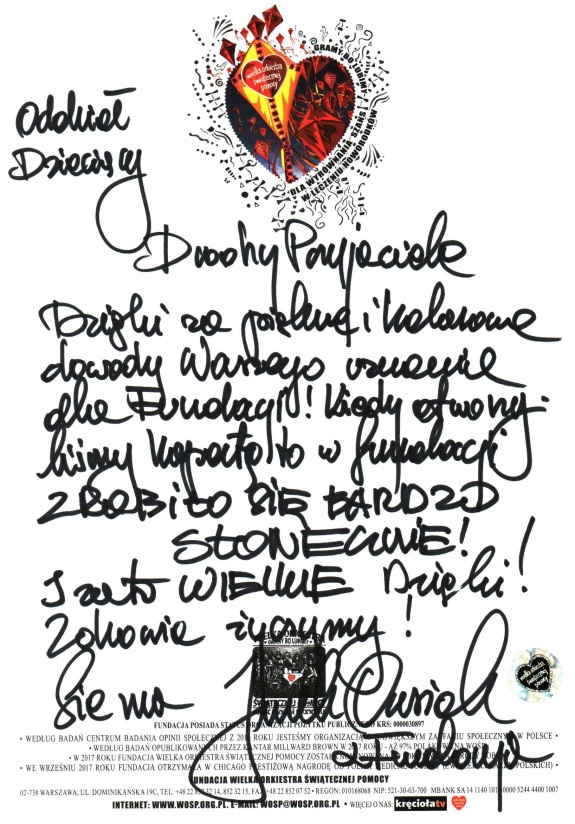 wielka orkiestra
świątecznej
pomocy
GRAMY BO LUBIMY
DLA WYRÓWNANIA SZANS
W LECZENIU NOWORODKÓW
Oddział
Dziecięcy
Drodzy Przyjaciele
Dzięki za piękne i kolorowe
dowody Waszego uznania
dla Fundacji! Kiedy otworzy-
liśmy kopertę to w fundacji
ZROBIŁO SIĘ BARDZO
SŁONECZNIE!
I za to WIELKIE Dzięki!
Zdrowia życzymy!
Sie ma Jurek Owsiak
z Fundacją
GRAMY BO LUBIMY
FUNDACJA POSIADA STATUS ORGANIZACJI POŻYTKU PUBLICZNEGO KRS: 0000030897
• WEDŁUG BADAŃ CENTRUM BADANIA OPINII SPOŁECZNEJ Z ROKU JESTEŚMY ORGANIZACJĄ ZAUFANIU SPOŁECZNYM W POLSCE •
• WEDŁUG BADAŃ OPUBLIKOWANYCH PRZEZ KANTAR MILLWARD BROWN W 2017 ROKU - AŻ 97%
• W 2017 ROKU FUNDACJA WIELKA ORKIESTRA ŚWIĄTECZNEJ POMOCY
• WE WRZEŚNIU 2017 ROKU FUNDACJA OTRZYMAŁA W CHICAGO PRESTIŻOWĄ NAGRODĘ OD
FUNDACJA WIELKA ORKIESTRA ŚWIĄTECZNEJ POMOCY
02-738 WARSZAWA, UL. DOMINIKAŃSKA 19C, TEL. +48 22 852 32 14, 852 32 15, FAX +48 22 852 07 52 • REGON: 010168068 NIP: 521-30-03-700 MBANK SA 14 1140 1010 0000 5244 4400 1007
INTERNET: WWW.WOSP.ORG.PL, E-MAIL: WOSP@WOSP.ORG.PL • WIĘCEJ O NAS: kręciołatv